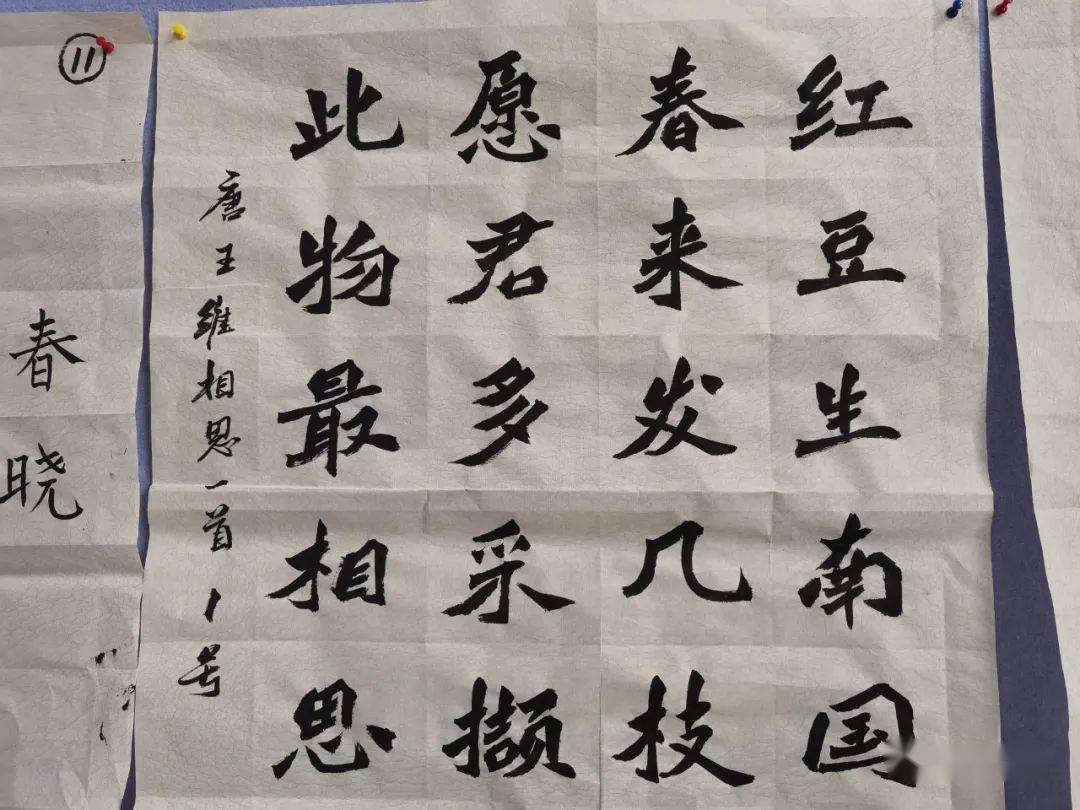 红豆生南国
春来发几枝
愿君多采撷
此物最相思
唐王维相思一首 1号
11
春晓